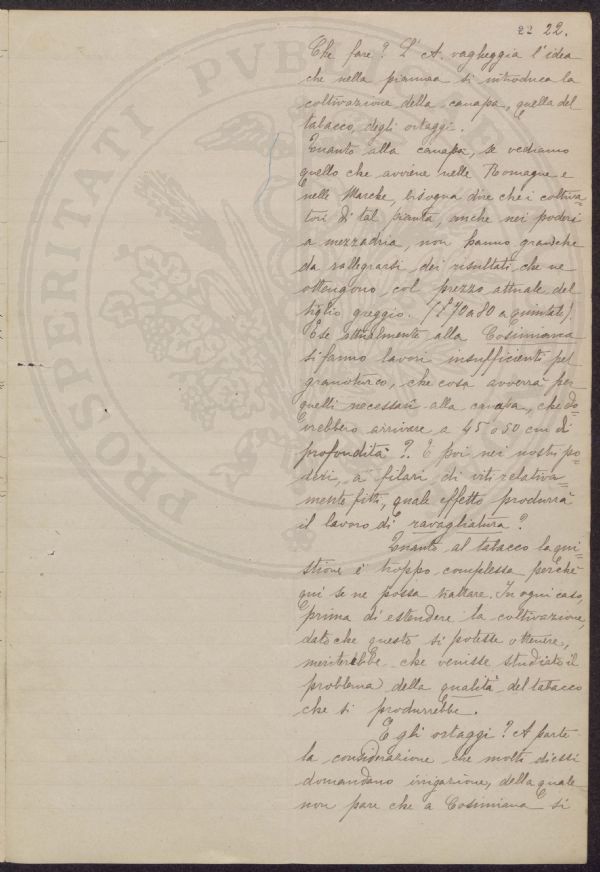 22 22.
Che fare? L'A. vagheggia l'idea
che nella pianura si introduca la
coltivazione della canapa, quella del
tabacco, degli ortaggi.
Quanto alla canapa, se vediamo
quello che avviene nelle Romagne e
nelle Marche, bisogna dire che i coltiva=
tori di tal pianta, anche nei poderi
a mezzadria, non hanno granche
da rallegrarsi dei risultati che ne
ottengono col prezzo attuale del
tiglio greggio. (£ 70 a 80 a quintale).
E se attualmente alla Cosimiana
si fanno lavori insufficienti pel
granoturco, che cosa avverrà per
quelli necessari alla canapa, che do=
vrebbero arrivare a 45 o 50 cm di
profondità? E poi nei nostri po=
deri, a filari di viti relativa=
mente fitti, quale effetto produrrà
il lavoro di ravagliatura?
Quanto al tabacco la qui=
stione è troppo complessa perché
qui se ne possa trattare. In ogni caso,
prima di estendere la coltivazione,
dato che questo si potesse ottenere,
meriterebbe che venisse studiato il
problema della qualità del tabacco
che si produrrebbe.
E gli ortaggi? A parte
la considerazione che molti di essi
domandano irrigazione, della quale
non pare che a Cosimiana si
PROSPERITATI PUB